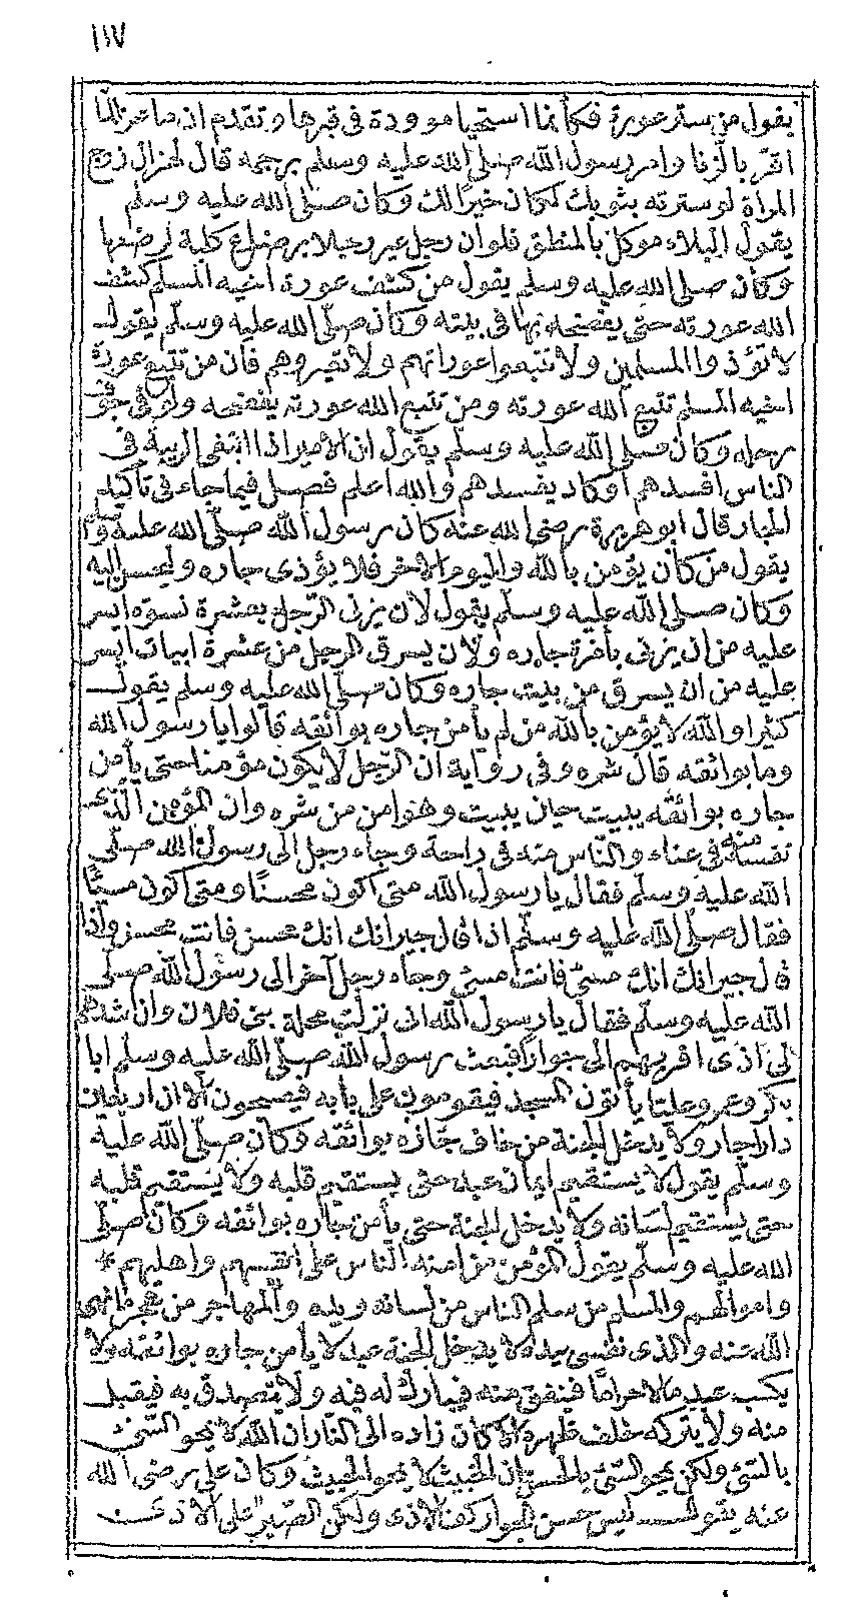 ١١٧
يقول من ستر عورة فكأنما استحيا موودة في قبرها وتقدم ان ماعزالما
اقر بالزنا وامر رسول الله صلى الله عليه وسلم برجمه قال لهزال زوج
المراة لوسترته بثوبك لكان خيرا لك وكان صلى الله عليه وسلم
يقول البلاء موكل بالمنطق فلوان رجل عير رجلا برضاع كلبة لرضعها
وكان صلى الله عليه وسلم يقول من كشف عورة اخيه المسلم كشف
الله عورته حتى يفضحه بها في بيته وكان صلى الله عليه وسلم يقول
لا تؤذوا المسلمين ولا تتبعوا عوراتهم ولا تعيروهم فان من تتبع عورة
اخيه المسلم تتبع الله عورته ومن تتبع الله عورته يفضحه ولو في جوف
رحله وكان صلى الله عليه وسلم يقول ان الامير اذا ابتغى الريبة في
الناس افسدهم اوكاد يفسدهم والله اعلم فصل فيما جاء في تأكيد
الجار قال ابو هريرة رضي الله عنه كان رسول الله صلى الله عليه وسلم
يقول من كان يؤمن بالله واليوم الاخر فلا يؤذي جاره وليحسن اليه
وكان صلى الله عليه وسلم يقول لان يزني الرجل بعشرة نسوة ايسر
عليه من ان يزني بامرأة جاره ولان يسرق الرجل من عشرة ابيات ايسر
عليه من ان يسرق من بيت جاره وكان صلى الله عليه وسلم يقول
كثيرا والله لا يؤمن بالله من لم يأمن جاره بوائقه قالوا يا رسول الله
وما بوائقه قال شره وفي رواية ان الرجل لا يكون مؤمنا حتى يأمن
جاره بوائقه يبيت حين يبيت وهو امن من شره وان المؤمن الذي
نفسه منه في عناء والناس منه في راحة وجاء رجل الى رسول الله صلى
الله عليه وسلم فقال يا رسول الله متى اكون محسنا ومتى اكون مسيئا
فقال صلى الله عليه وسلم اذا قال جيرانك انك محسن فانت محسن واذا
قال جيرانك انك مسئ فانت مسئ وجاء رجل آخر الى رسول الله صلى
الله عليه وسلم فقال يا رسول الله اني نزلت محلة بني فلان وان اشدهم
لي اذى اقربهم الي جوارا فبعث رسول الله صلى الله عليه وسلم ابا
بكر وعمر وعليا يأتون المسجد فيقومون على بابه فيصيحون الا ان اربعين
دارا جار ولا يدخل الجنة من خاف جاره بوائقه وكان صلى الله عليه
وسلم يقول لا يستقيم ايمان عبد حتى يستقيم قلبه ولا يستقيم قلبه
حتى يستقيم لسانه ولا يدخل الجنة حتى يأمن جاره بوائقه وكان صلى
الله عليه وسلم يقول المؤمن من امنه الناس على انفسهم واهليهم *
واموالهم والمسلم من سلم الناس من لسانه ويده والمهاجر من هجر ما نهى
الله عنه والذي نفسي بيده لا يدخل الجنة عبد لا يأمن جاره بوائقه ولا
يكسب عبد مالا حراما فينفق منه فيبارك له فيه ولا تصدق به فيقبل
منه ولا يتركه خلف ظهره الا كان زاده الى النار ان الله لا يمحو السئ
بالسئ ولكن يمحو السئ بالحسن ان الخبيث لا يمحو الخبيث وكان علي رضي الله
عنه يقول ليس حسن الجوار كف الاذى ولكن الصبر على الاذى عن